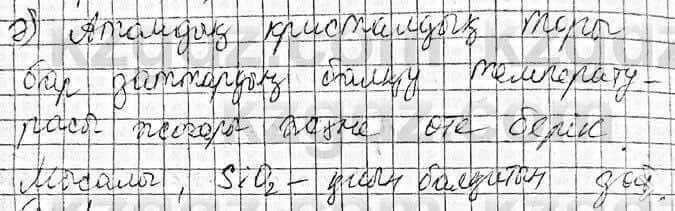 ә) Атомдық кристалдық торы
бар заттардың балқу температу-
расы жоғары және өте берік.
Мысалы, SiO₂ – қиын балқитын зат.